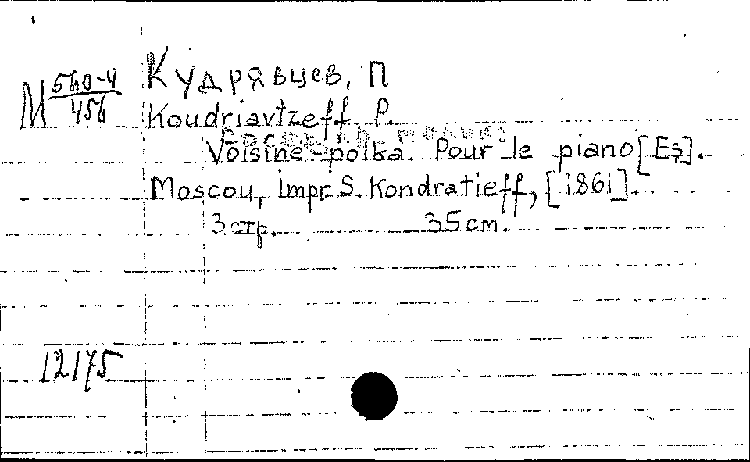 М 560-4/456
Кудрявцев, П
Koudriavtzeff P.
Voisine-polka. Pour le piano [Es].
Moscou, impr. S. Kondratieff, [1861].
3 стр. 35 см.
12175